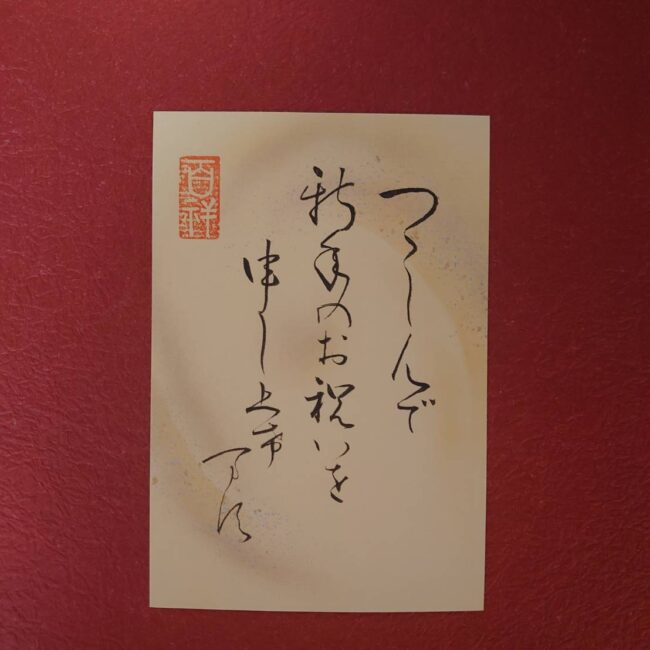 つゝしんで
新年のお祝いを
申し上げ
ます
百祥